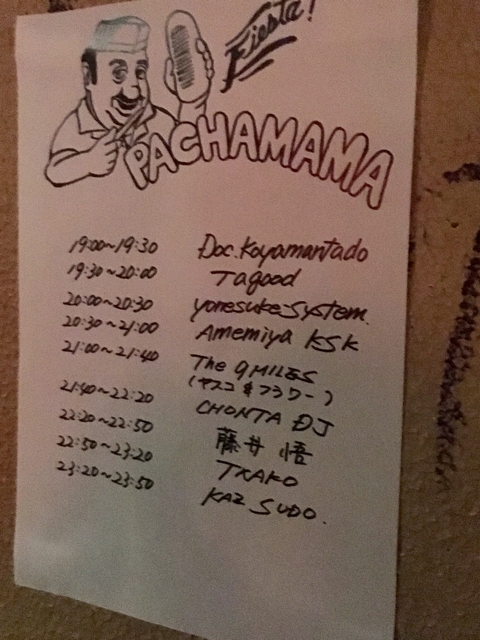 Fiesta!
PACHAMAMA
19:00~19:30 Doc.Koyamantado
19:30~20:00 Tagood
20:00~20:30 yonesuke-System.
20:30~21:00 Amemiya KSK
21:00~21:40 The 9MILES
(ヤスコ & フラワー)
21:40~22:20 CHONTA DJ
22:20~22:50 藤井 悟
22:50~23:20 TXAKO
23:20~23:50 KAZ SUDO.